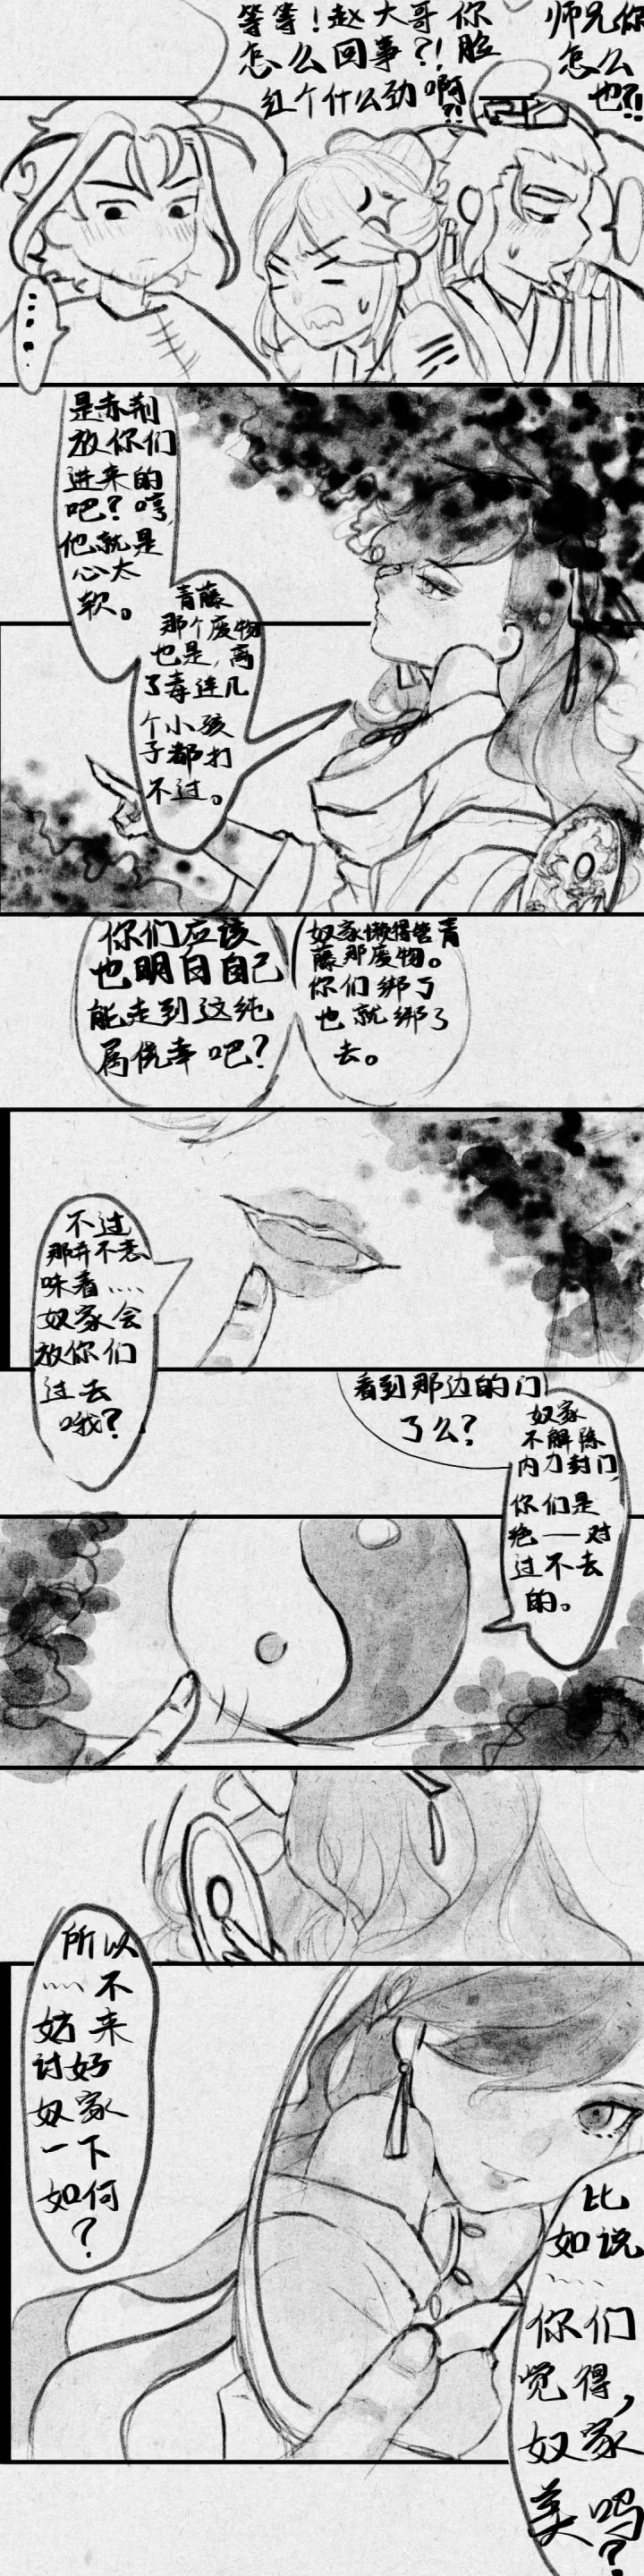 等等！赵大哥你
怎么回事？！脸
红个什么劲啊？！
师兄你
怎么
也？！
....
是赤荆
放你们
进来的
吧？哼，
他就是
心太
软。
青藤
那个废物
也是，离
了毒连几
个小孩
子都打
不过。
奴家懒得管青
藤那废物。
你们绑了
也就绑了
去。
你们应该
也明白自己
能走到这纯
属侥幸吧？
不过
那并不意
味着....
奴家会
放你们
过去
哦？
看到那边的门
了么？
奴家
不解除
内力封门，
你们是
绝——对
过不去
的。
所以
....不
妨来
讨好
奴家
一下
如何
？
比
如说
....
你们
觉得，
奴家
美吗？